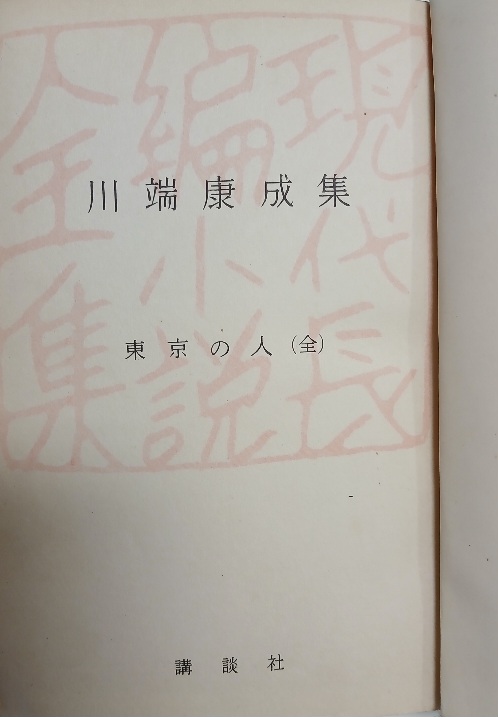 現代長
編小説
全集
川端康成集
東京の人（全）
講談社